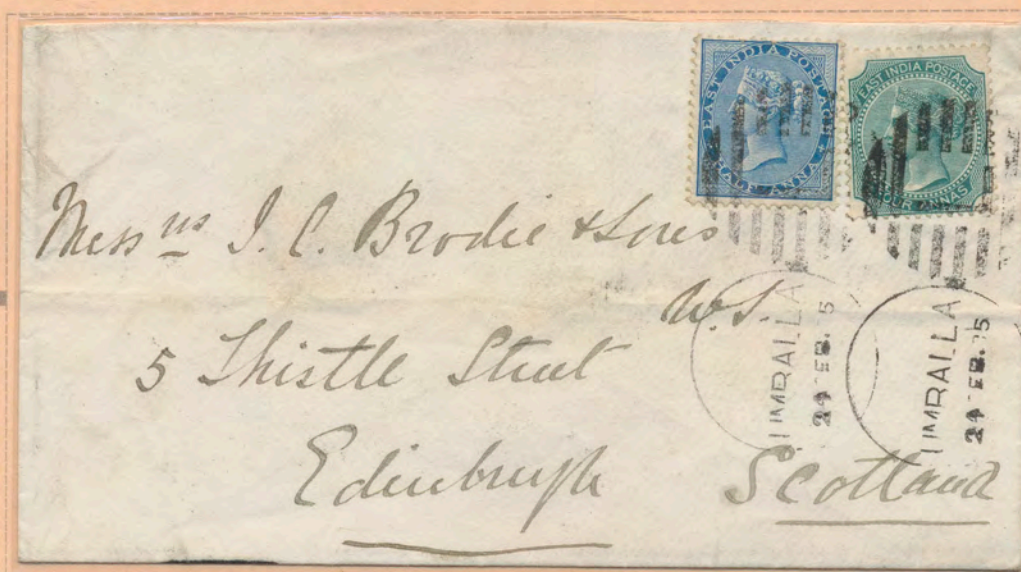 EAST INDIA POSTAGE
HALF ANNA
EAST INDIA POSTAGE
FOUR ANNAS
Messrs J. C. Brodie & Sons
W.S.
5 Thistle Street
Edinburgh
Scotland
UMBALLA
24 FEB.
UMBALLA
24 FEB.